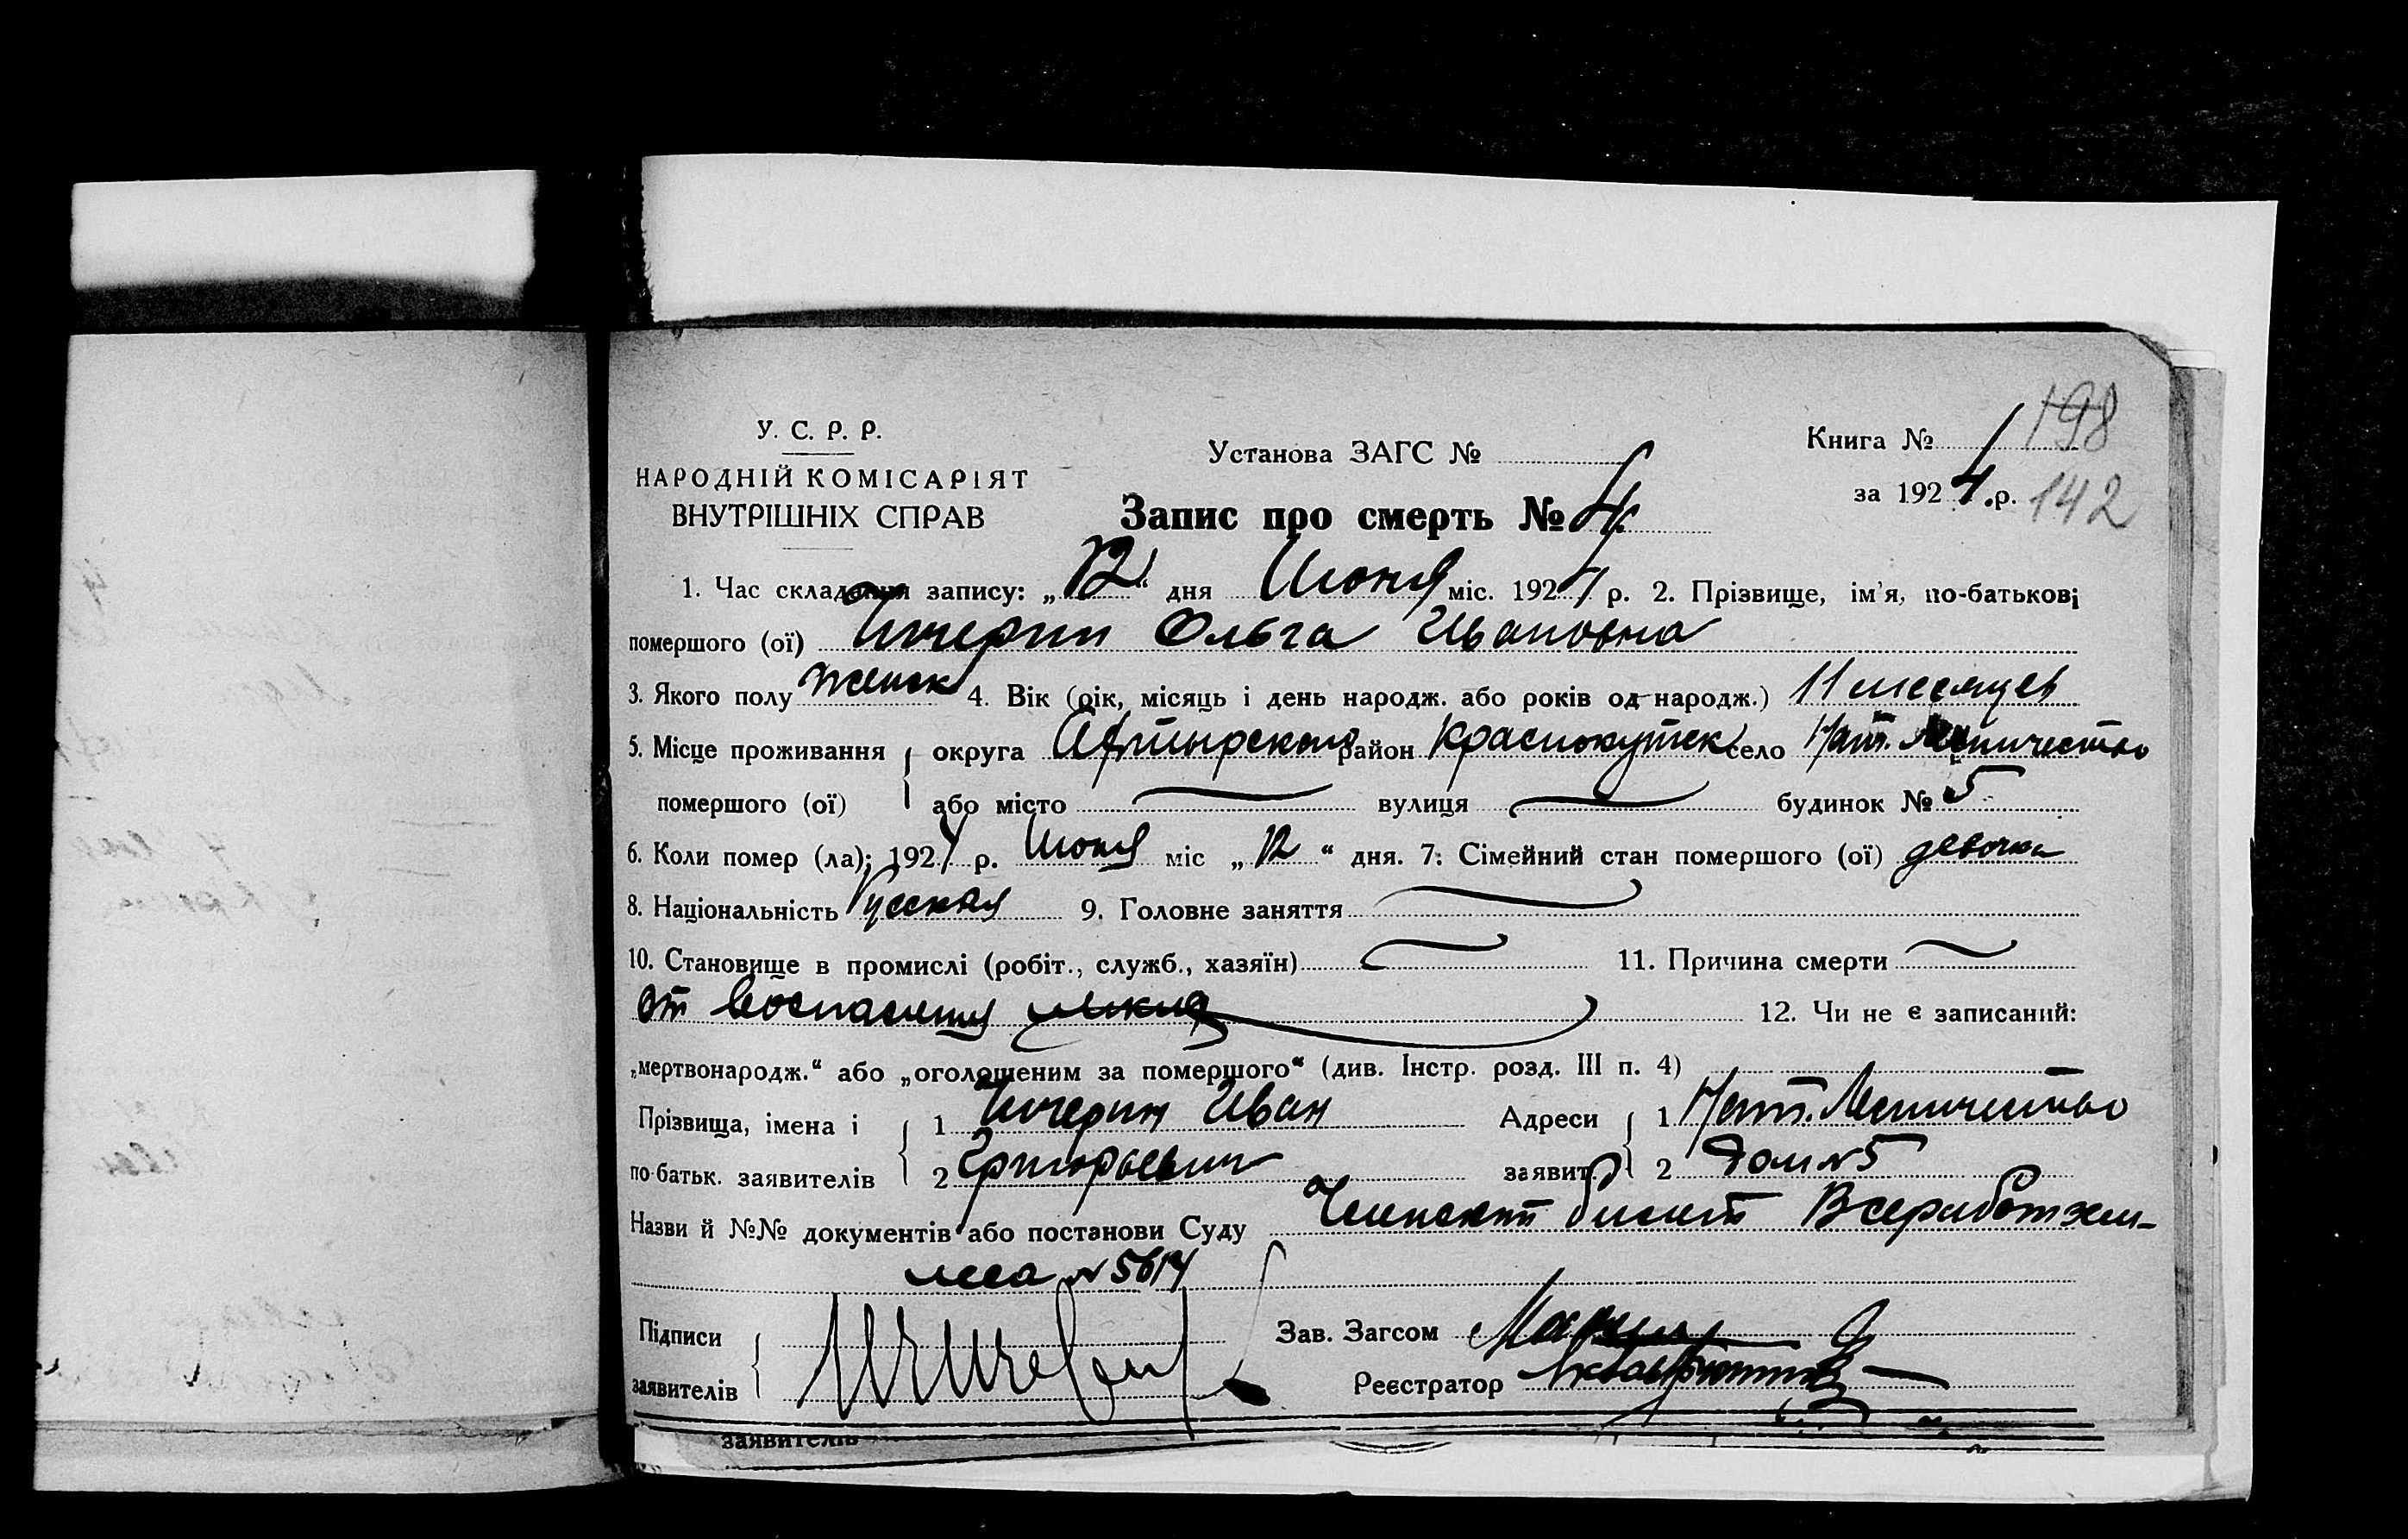 У. С. Р. Р.
НАРОДНІЙ КОМІСАРІЯТ
ВНУТРІШНІХ СПРАВ
Установа ЗАГС №
Запис про смерть № 4
Книга № 1 198
за 1924 р. 142
1. Час складання запису: „12“ дня Июня міс. 1924 р. 2. Прізвище, ім'я, по-батькові
помершого (ої) Чичерин Ольга Ивановна
3. Якого полу женск 4. Вік (рік, місяць і день народж. або років од народж.) 11 месяцев
5. Місце проживання округа Ахтырского район Краснокутск село Нат. Лесничество
помершого (ої) або місто — вулиця — будинок № 5
6. Коли помер (ла); 1924 р. Июня міс „12“ дня. 7. Сімейний стан помершого (ої) девочка
8. Національність Русская 9. Головне заняття —
10. Становище в промислі (робіт., служб., хазяїн) — 11. Причина смерти —
от воспаления 12. Чи не є записаний:
„мертвонародж.“ або „оголошеним за помершого“ (див. Інстр. розд. III п. 4)
Прізвища, імена і 1 Чичерин Иван Адреси 1 Нат. Лесничество
по-батьк. заявителів 2 Григорьевич заявит. 2 дом № 5
Назви й №№ документів або постанови Суду Членский билет Всеработзем-
леса № 5614
Підписи
заявителів
Зав. Загсом
Реєстратор
заявителів